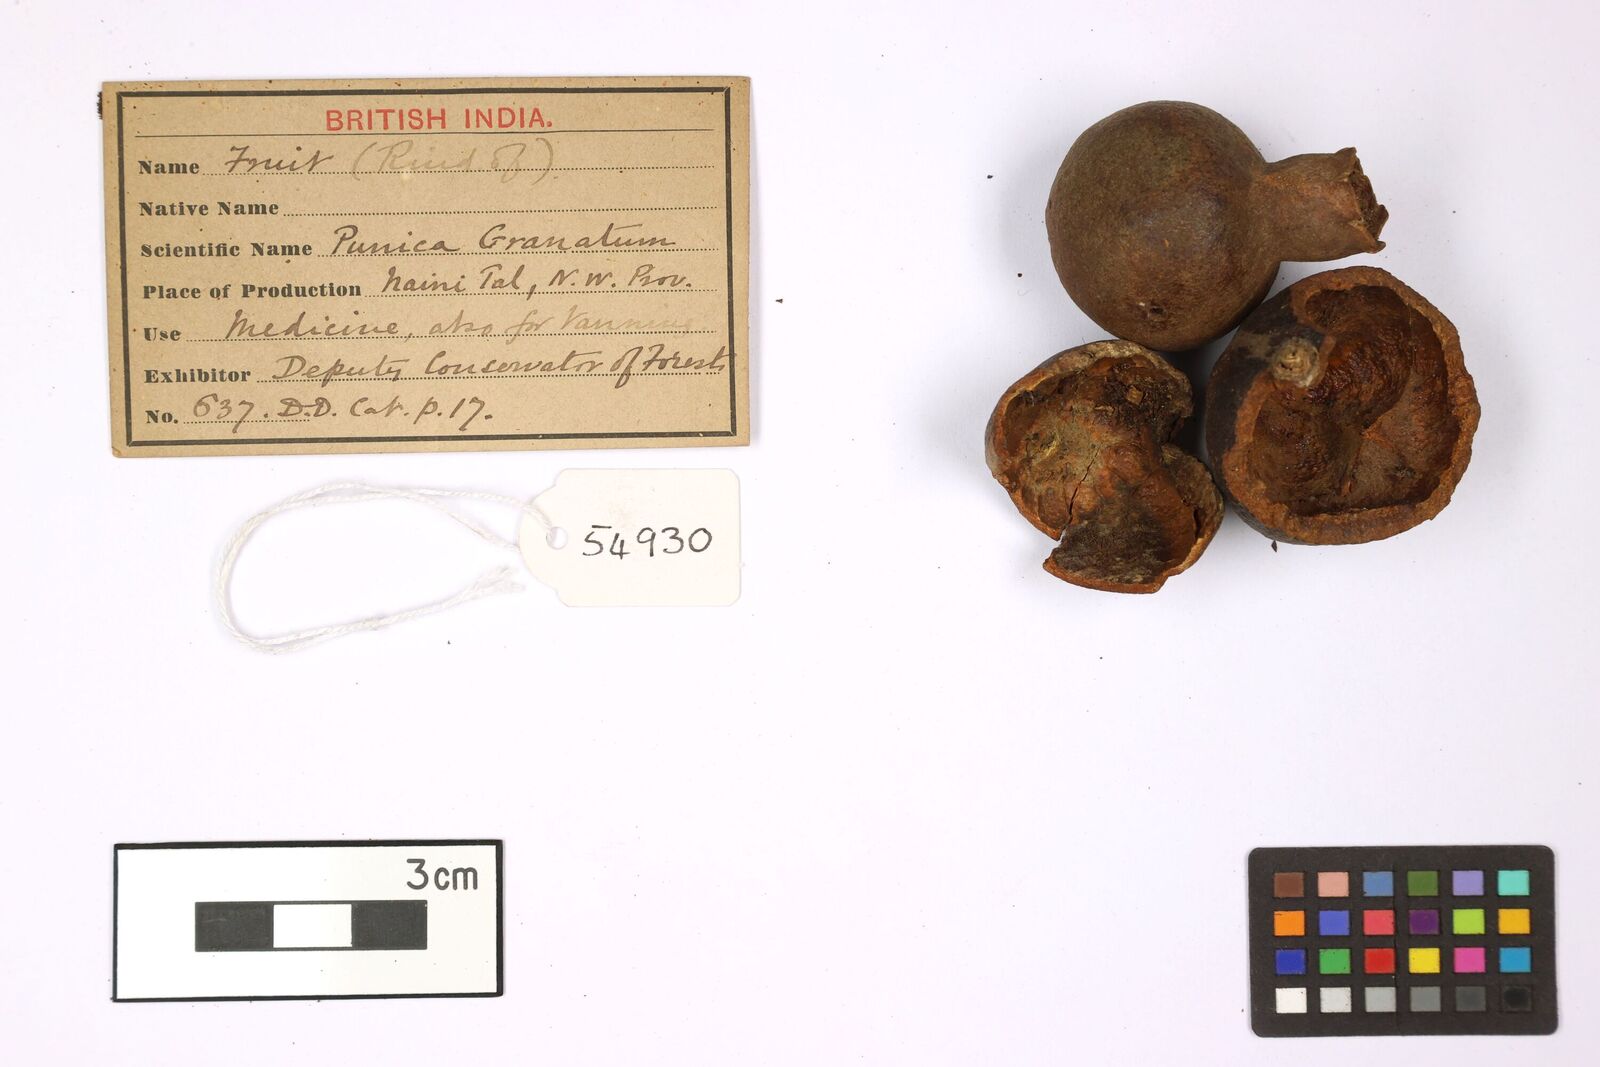 BRITISH INDIA.
Name Fruit (Rind of)
Native Name
Scientific Name Punica Granatum
Place of Production Naini Tal, N.W. Prov.
Use Medicine, also for Tanning
Exhibitor Deputy Conservator of Forests
No. 637. D.D. Cat. p. 17.
54930
3cm